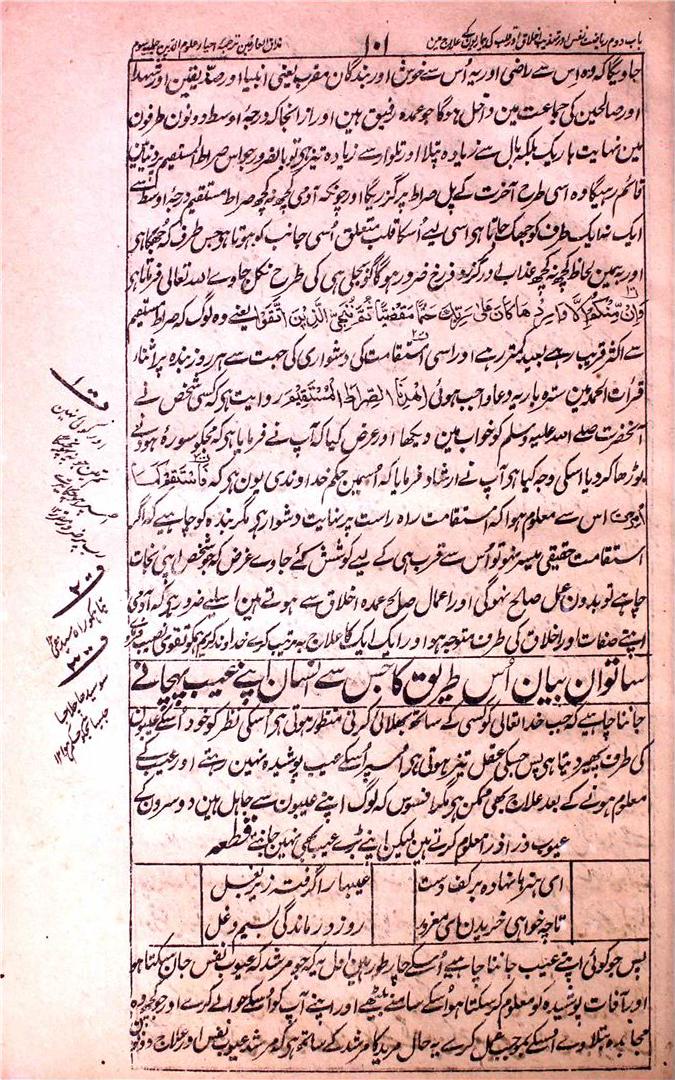 باب دوم ریاضت نفس اور تہذیب اخلاق اور قلب کی بیماریوں کے علاج مین
۱۰۱
مذاق العارفین ترجمہ احیاء علوم الدین جلد سوم
جاویگا کہ وہ اس سے راضی اور یہ اُس سے خوش اور بندگان مقرب یعنی انبیا اور صدیقین اور شہدا
اور صالحین کی جماعت مین داخل ہوگا جو عمدہ رفیق ہین اور ازانجا کہ درجۂ اوسط دونون طرفون
مین نہایت باریک بلکہ بال سے زیادہ پتلا اور تلوار سے زیادہ تیز ہی تو بالضرور جو اس صراط المستقیم پر دنیا مین
قائم رہیگا وہ اسی طرح آخرت کے پل صراط پر گزریگا اور چونکہ آدمی کچھ نہ کچھ صراط مستقیم درجۂ اوسط سے
ایک نہ ایک طرف کو جھک جاتا ہی اسی لیے اُسکا قلب متعلق اُسی جانب کو ہوتا ہو جس طرف کہ جھکتا ہی
اور بہ ہمین لحاظ کچھ نہ کچھ عذاب در گزر دوزخ ضرور ہوگا گو بجلی ہی کی طرح نکل جاوے اللہ تعالی فرماتا ہی
وَاِنْ مِّنْكُمْ اِلَّا وَارِدُهَا كَانَ عَلٰى رَبِّكَ حَتْمًا مَّقْضِيًّا ثُمَّ نُنَجِّي الَّذِيْنَ اتَّقَوْا یعنے وہ لوگ کہ صراط مستقیم
سے اکثر قریب رہے بعید کمتر رہے اور اسی استقامت کی دشواری کی جہت سے ہر روز بندہ پر اثناء
قرأت الحمد مین سترہ بار یہ دعا واجب ہوئی اِهْدِنَا الصِّرَاطَ الْمُسْتَقِيْمَ روایت ہی کہ کسی شخص نے
آنحضرت صلے اللہ علیہ وسلم کو خواب مین دیکھا اور عرض کیا کہ آپ نے فرمایا ہی کہ مجکو سورۂ ہود نے
بوڑھا کردیا اسکی وجہ کیا ہی آپ نے ارشاد فرمایا کہ اُسمین حکم خداوندی یون ہی کہ فَاسْتَقِمْ كَمَا
اُمِرْتَ اس سے معلوم ہوا کہ استقامت راہ راست پر نہایت دشوار ہی مگر بندہ کو چاہیے کہ اگر
استقامت حقیقی میسر نہو تو اُس سے قرب ہی کے لیے کوشش کیے جاوے غرض کہ جو شخص اپنی نجات
چاہے تو بدون عمل صالح نہوگی اور اعمال صالح عمدہ اخلاق سے ہوتے ہین اسلیے ضرور ہی کہ آدمی
اپنے صفات اور اخلاق کی طرف متوجہ ہو اور ایک ایک کا علاج بہ ترتیب کرے خداوند کریم ہمکو تقوی نصیب کرے
ساتوان بیان اُس طریق کا جس سے انسان اپنے عیب پہچانے
جاننا چاہیے کہ جب خدا تعالی کو کسی کے ساتھ بھلائی کرنی منظور ہوتی ہی اُسکی نظر کو خود اُسکے عیبون
کی طرف پھیر دیتا ہی پس جسکی عقل تیز ہوتی ہی اُسپر اُسکے عیب پوشیدہ نہین رہتے اور عیب کے
معلوم ہونے کے بعد علاج بھی ممکن ہی مگر افسوس کہ لوگ اپنے عیبون سے جاہل ہین دوسرون کے
عیوب ذرا ذرا معلوم کرتے ہین لیکن اپنے بڑے عیب بھی نہین جانتے قطعہ
ای ہنرہا نہادہ بر کف دست عیبہا را گرفتہ زیر بغل
تا چہ خواہی خریدن ای مغرور روز درماندگی بسیم دغل
پس جو کوئی اپنے عیب جاننا چاہے اُسکے چار طور ہین اول یہ کہ جو مرشد کہ عیوب نفس جان سکتا ہو
اور آفات پوشیدہ کو معلوم کر سکتا ہو اُسکے سامنے بیٹھے اور اپنے آپ کو اُسکے حوالے کرے اور جو کچھ وہ
مجاہدہ بتلاوے اُسکے بموجب عمل کرے یہ حال مرید کا مرشد کے ساتھ ہی کہ مرشد عیوب نفس اور علاج دونون
ف ۱
اور کوئی نہین
ف ۲
بتا ہمکو راہ سیدھی
ف ۳
سو سیدھا چلا جا
جیسا تجکو حکم ہوا ۱۲